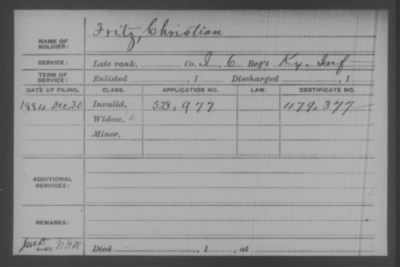 NAME OF SOLDIER: Fritz, Christian
SERVICE: Late rank, Co. I, 6 Reg't Ky. Inf
TERM OF SERVICE: Enlisted , 1 Discharged , 1
DATE OF FILING. CLASS. APPLICATION NO. LAW. CERTIFICATE NO.
1884 Dec. 30 Invalid, 528,977 479,377
Widow,
Minor,
ADDITIONAL SERVICES:
REMARKS:
Died , 1 , at